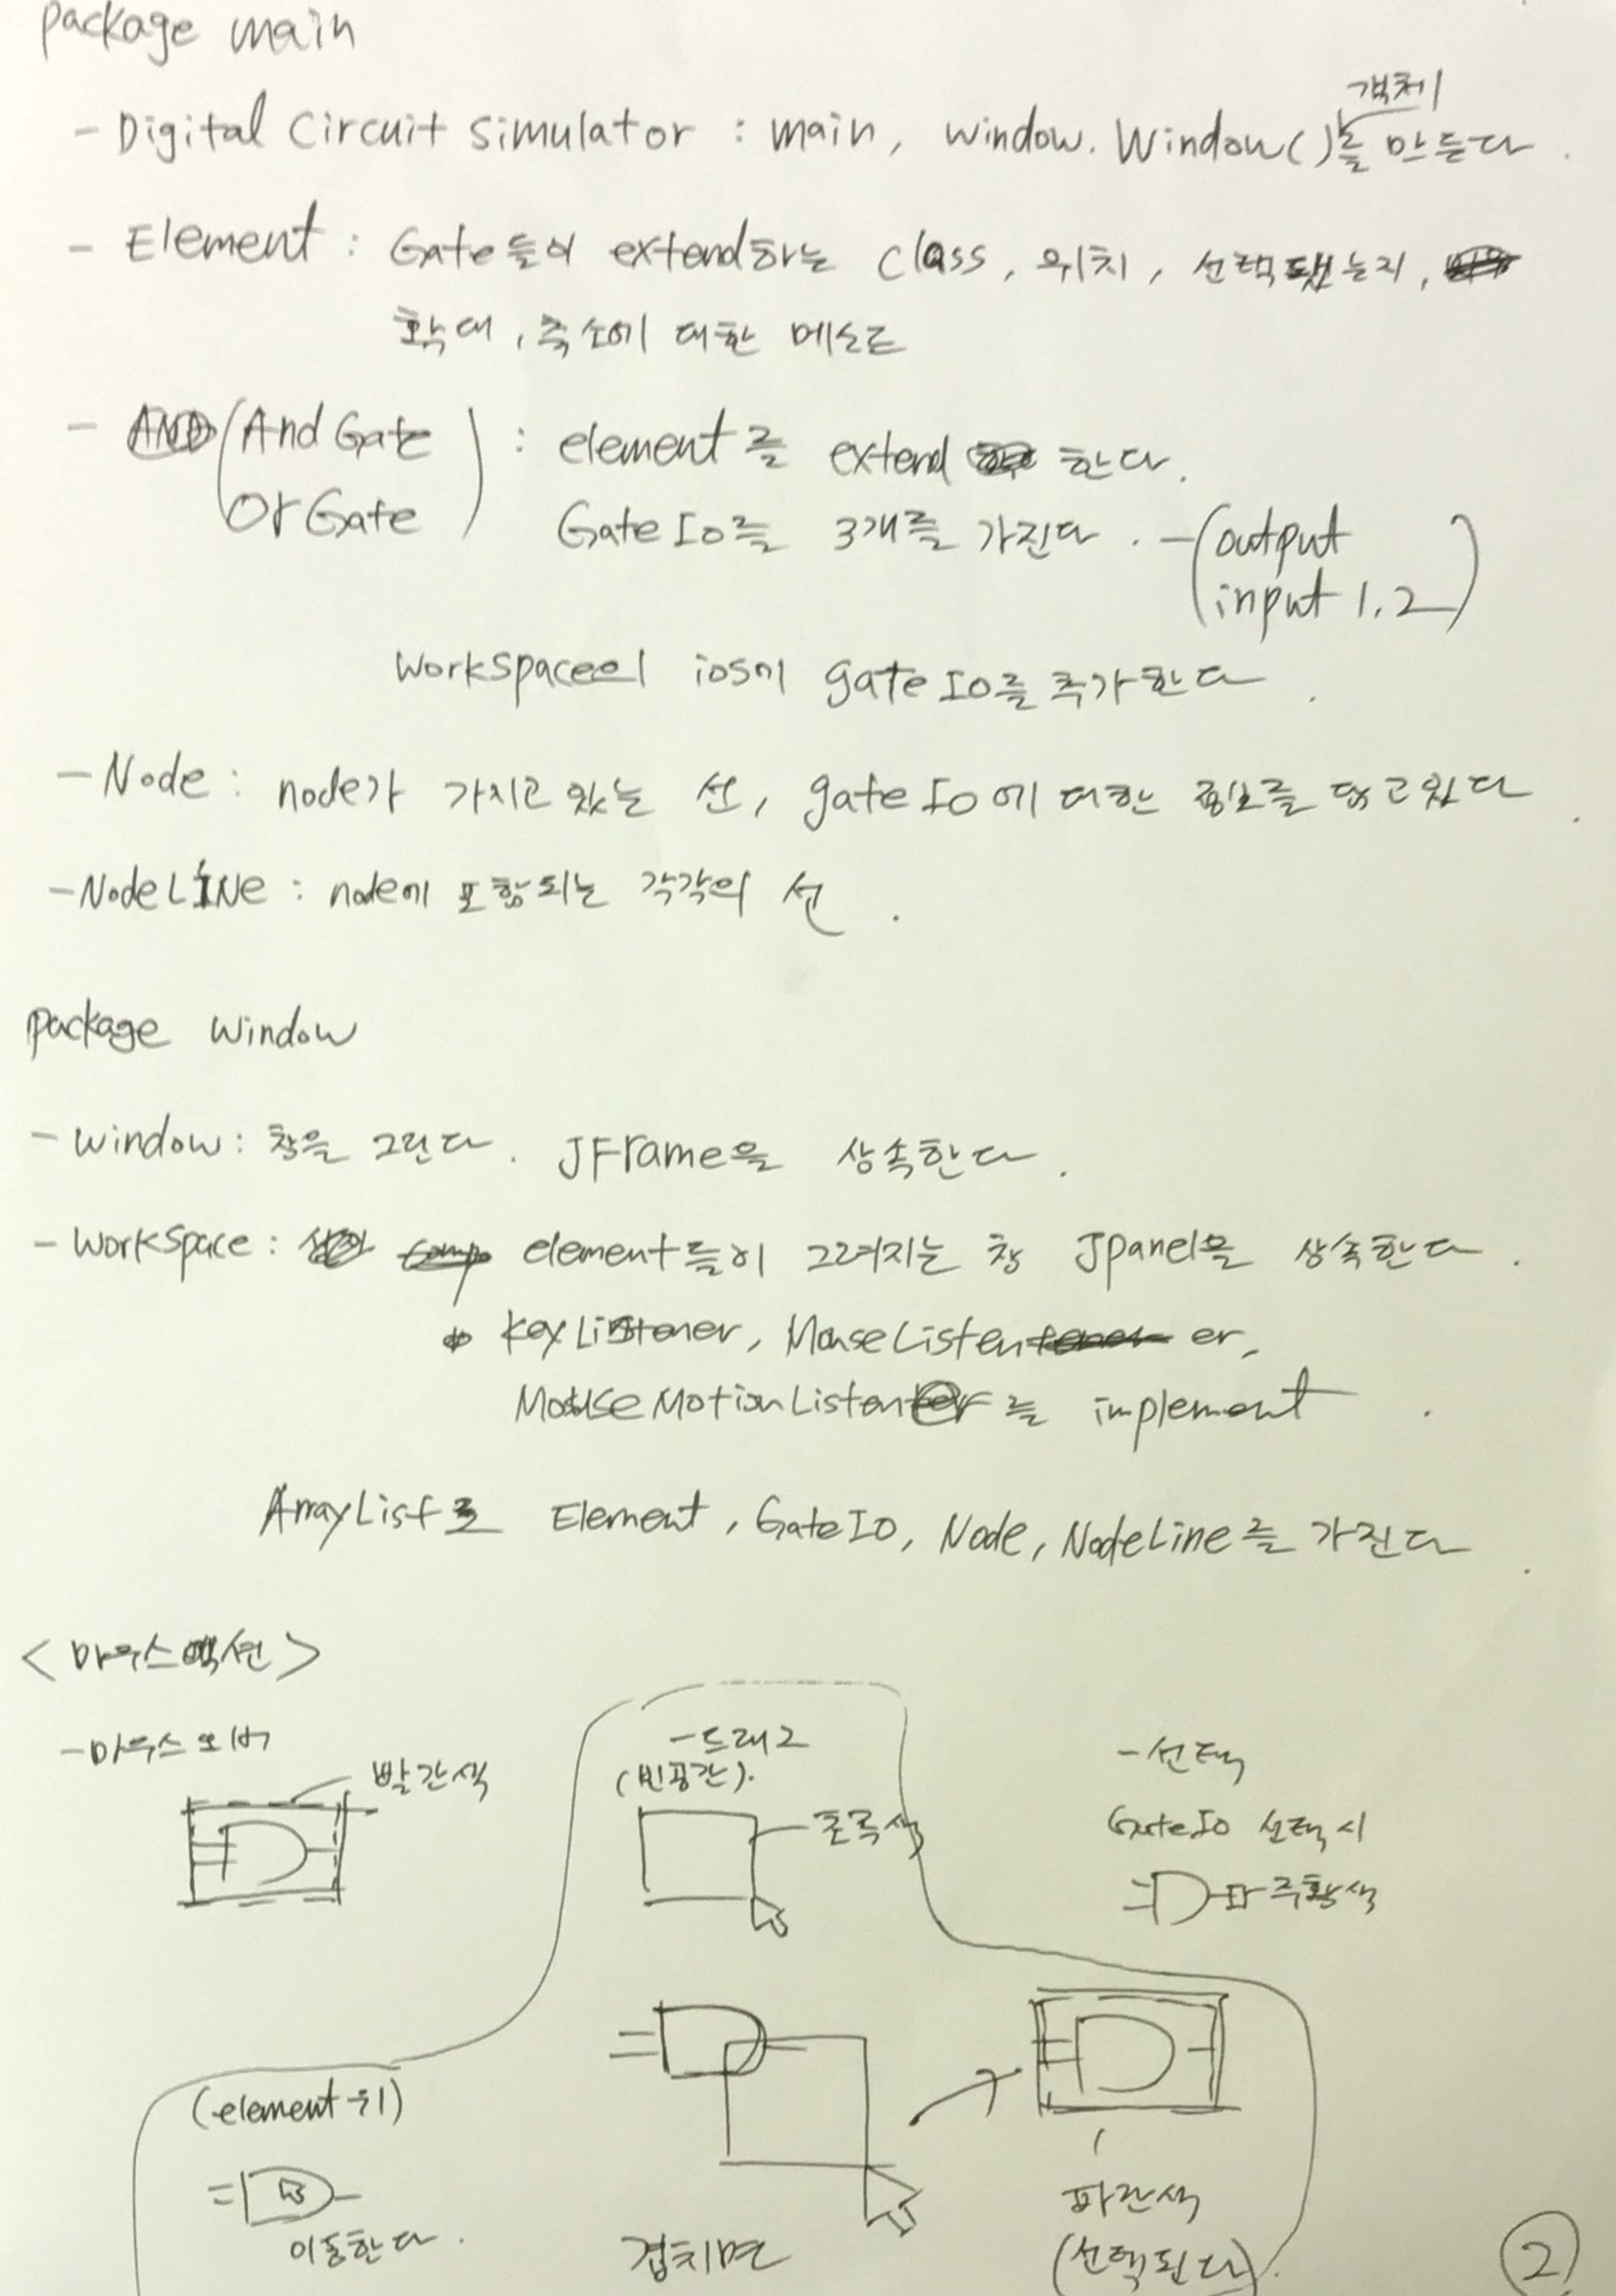 package main
객체
- Digital Circuit Simulator : main, window.Window()를 만든다.
- Element : Gate들이 extend하는 class, 위치, 선택됐는지,
확대, 축소에 대한 메소드
- (And Gate
Or Gate) : element를 extend 한다.
Gate Io를 3개를 가진다. - (output
input 1.2)
Workspace의 ios에 gate Io를 추가한다.
- Node : node가 가지고 있는 선, gate Io에 대한 정보를 담고있다.
- NodeLINe : node에 포함되는 각각의 선.
package window
- window : 창을 그린다. JFrame을 상속한다.
- Workspace : element들이 그려지는 창 Jpanel을 상속한다.
KeyListener, MouseListener,
MouseMotionListener를 implement.
ArrayList로 Element, GateIO, Node, NodeLine를 가진다.
<마우스액션>
- 마우스오버
빨간색
- 드래그
(빈공간).
초록색
- 선택
GateIo 선택시
주황색
(element 위)
이동한다.
겹치면
파란색
(선택된다).
2